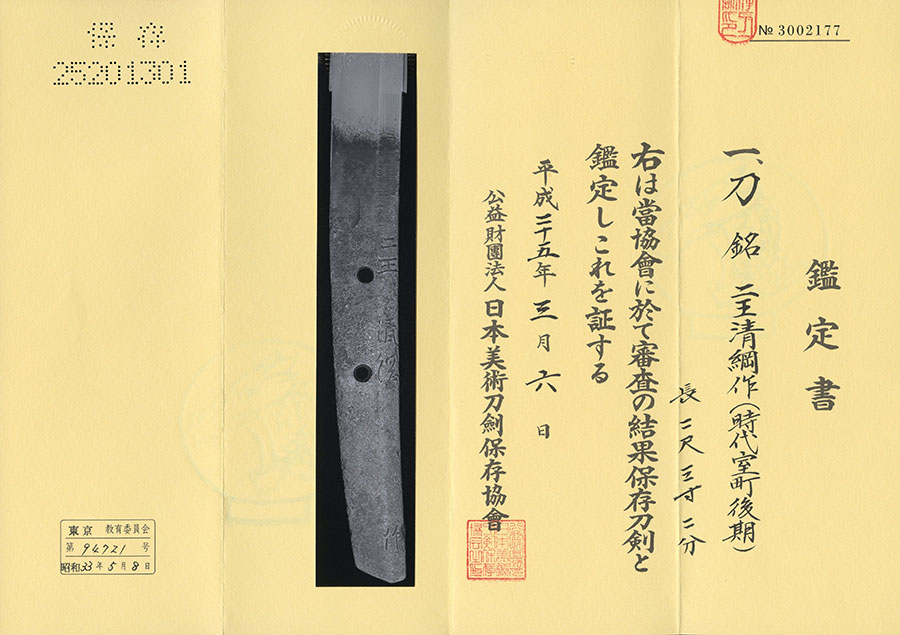 № 3002177
鑑定書
一、刀 銘 二王清綱作(時代室町後期)
長 二尺三寸二分
右は當協會に於て審査の結果保存刀剣と
鑑定しこれを証する
平成二十五年三月六日
公益財團法人 日本美術刀劍保存協會
保存
25201301
二王清綱
作
東京 教育委員会
第 94721 号
昭和33年5月8日